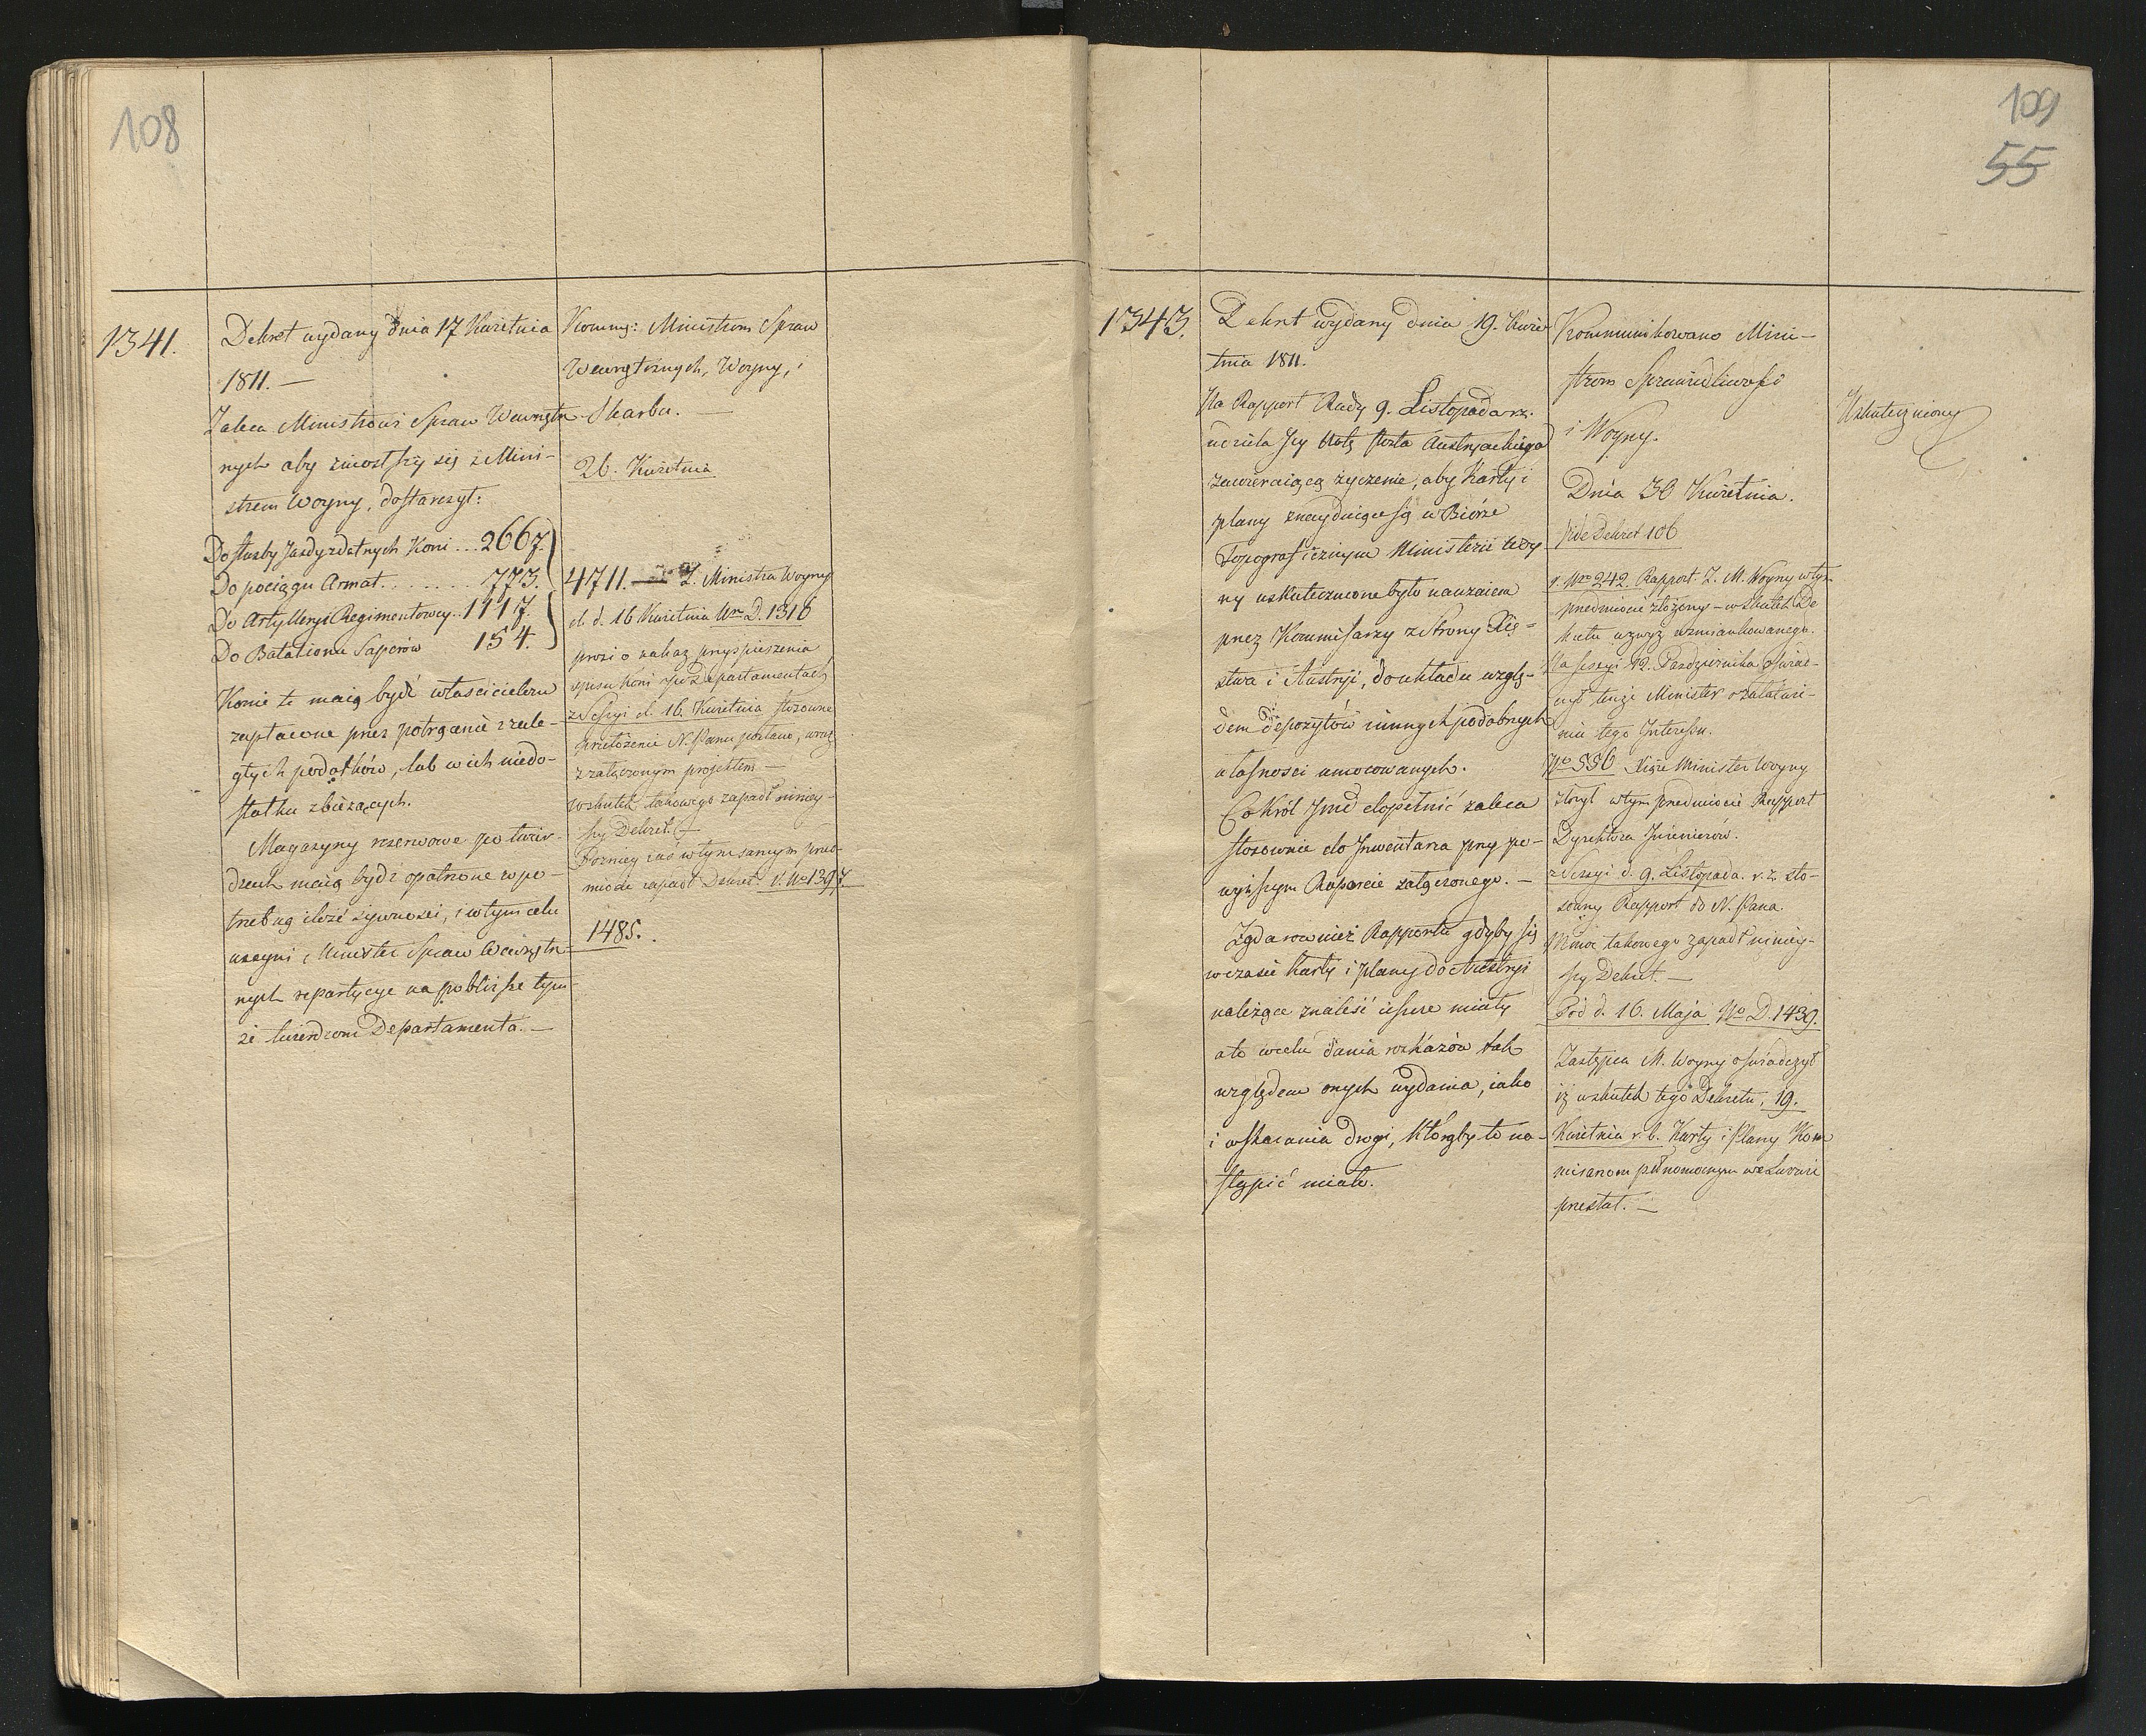 108
1341.
Dekret wydany dnia 17 Kwietnia
1811. —
Zaleca Ministrowi Spraw Wewnętrz-
nych aby zniostszy się z Mini-
strem Woyny, dostarczył:
Do służby Jazdy zdatnych Koni ... 2667.
Do pociągu Armat ....... 773.
Do Artylleryi Regimentowey .. 1117.
Do Batalionu Saperów 154.
Konie te maią bydź właścicielom
zapłacone przez potrącenie z zale-
głych podatków, lub w ich niedo-
statku z bieżących.
Magazyny rezerwowe po twier-
dzach maią bydź opatrzone w po-
trzebną ilość żywności, i w tym celu
uczyni Minister Spraw Wewnętrz-
nych repartycye na pobliższe tym-
że twierdzom Departamenta. —
Kommg: Ministrom Spraw
Wewnętrznych, Woyny, i
Skarbu. —
26. Kwietnia
4711. — Z. Ministra Woyny
d. d. 16 Kwietnia Nro D. 1316
prosi o nakaz przyspieszenia
spisu koni po Departamentach
z Sessyi d. 16. Kwietnia stosowne
przełożenie N. Panu posłano, wraz
z załączonym projektem —
w skutek takowego zapadł niniey-
szy Dekret. —
Pózniey zaś w tym samym przed-
miocie zapadł Dekret. V. No 1397.
1485.
109
55
1343.
Dekret wydany dnia 19. Kwie
tnia 1811.
Na Rapport Rady 9. Listopada r.z.
udziela Jey Notę Posła Austryackiego
zawieraiącą życzenie, aby Karty i
plany znayduiące się w Biórze
Topograficznym Ministerii Woy
ny uskutecznione było nawzaiem
przez Kommissarzy z Strony Xię-
stwa i Austryi, do układu wzglę-
dem depozytów i innych podobnych
własnosci umocowanych.
Co Król Jmć dopełnić zaleca
stosownie do Inwentarza przy po-
wyższym Raporcie załączonego. —
Żąda rownież Rapportu gdyby się
w czasie Karty i plany do Austryi
należące znaleść ieszcze miały
a to w celu dania rozkazów tak
względem onych wydania, iako
i wskazania drogi, którąby to na-
stąpić miało.
Kommunikowano Mini-
strom Sprawiedliwości
i Woyny.
Dnia 30 Kwietnia.
Vide Dekret 106
v. Nro 242. Rapport Z. M. Woyny w tym
przedmiocie złożony — w skutek De
kretu wzwyż wzmiankowanego.
Na sessyi 12. Pazdziernika oświad-
czył tenże Minister o załatwie-
niu tego Interessu.
No 556 Xiąże Minister Woyny
złożył w tym przedmiocie Rapport
Dyrektora Inżenierów.
z Sessyi d. 9. Listopada. r. z. sto-
sowny Rapport do N. Pana.
W moc takowego zapadł niniey-
szy Dekret. —
Pod d. 16. Maja No D. 1439.
Zastępca M. Woyny oswiadczył
iż w skutek tego Dekretu, 19.
Kwietnia r. b. Karty i Plany Kom
misarzom pełnomocnym we Lwowie
przesłał. —
Uskuteczniony